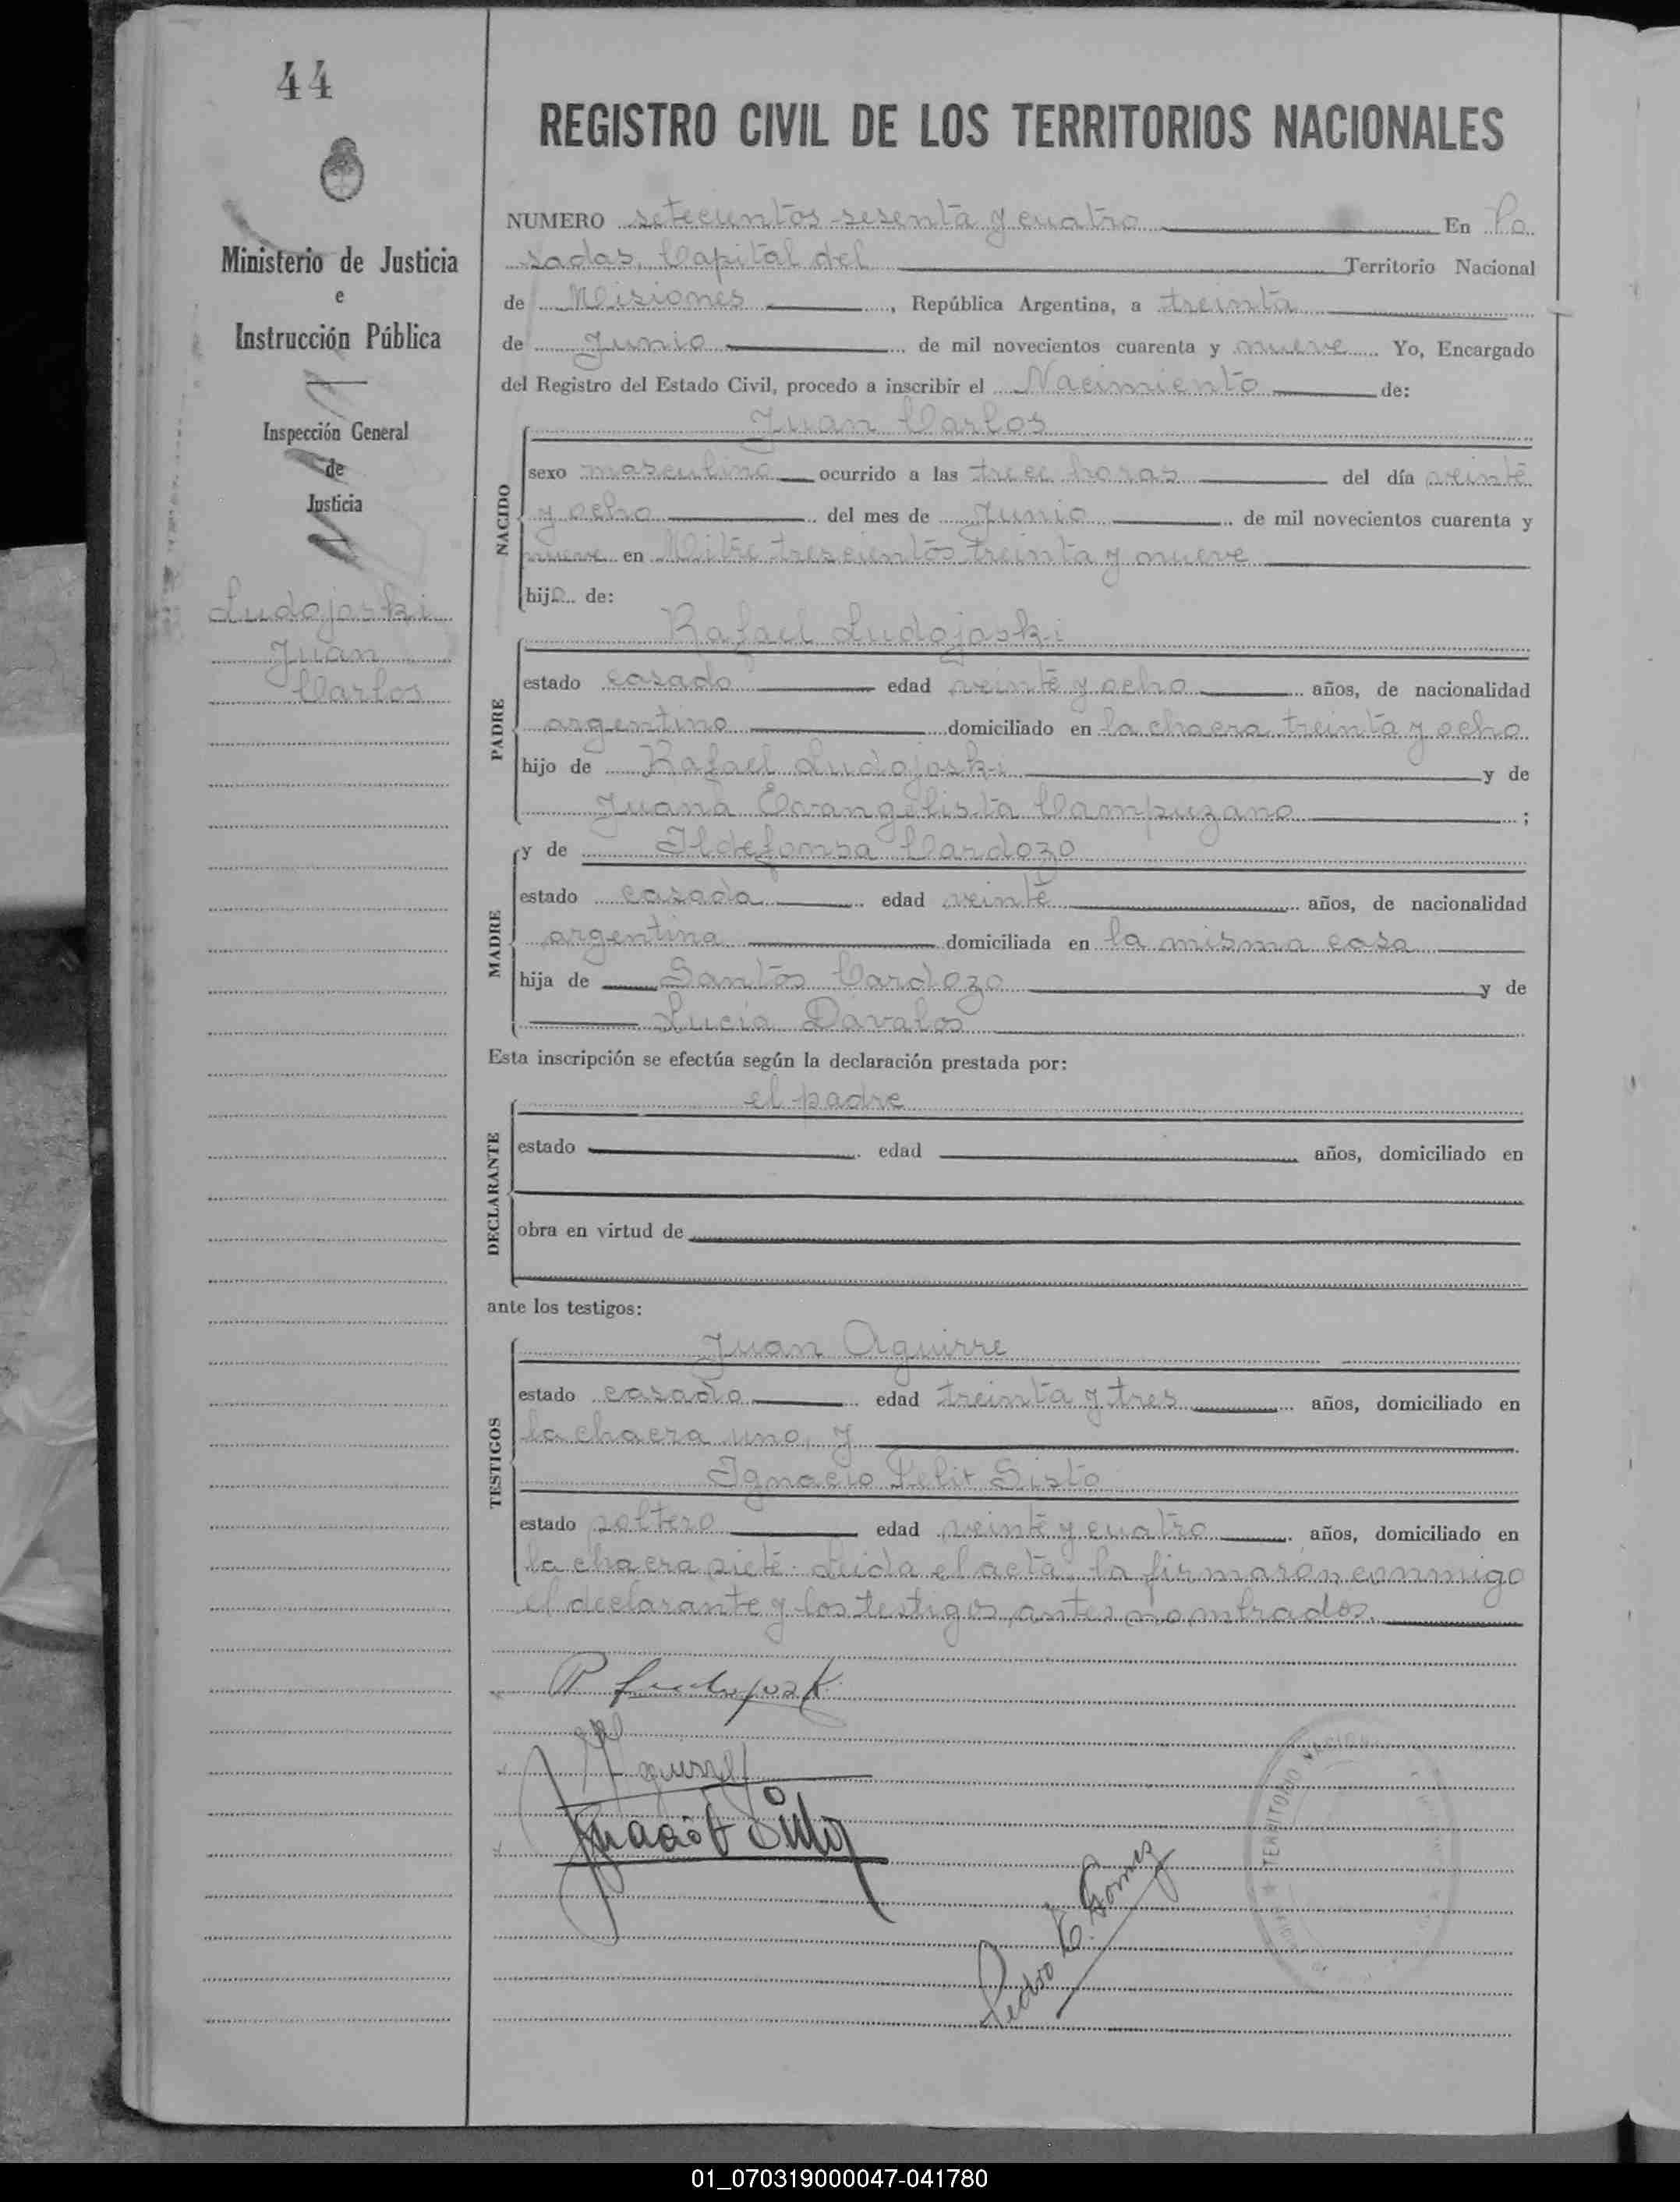 44
Ministerio de Justicia
e
Instrucción Pública
Inspección General
de
Justicia
Ludojoski
Juan
Carlos
REGISTRO CIVIL DE LOS TERRITORIOS NACIONALES
NUMERO setecientos sesenta y cuatro En Po
sadas, Capital del Territorio Nacional
de Misiones, República Argentina, a treinta
de Junio de mil novecientos cuarenta y nueve Yo, Encargado
del Registro del Estado Civil, procedo a inscribir el Nacimiento de:
Juan Carlos
NACIDO
sexo masculino ocurrido a las trece horas del día veinte
y ocho del mes de Junio de mil novecientos cuarenta y
nueve en Mitre trescientos treinta y nueve
hijo de:
Rafael Ludojoski
PADRE
estado casado edad veinte y ocho años, de nacionalidad
argentino domiciliado en la chacra treinta y ocho
hijo de Rafael Ludojoski y de
Juana Evangelista Campuzano ;
MADRE
y de Ildefonsa Cardozo
estado casada edad veinte años, de nacionalidad
argentina domiciliada en la misma casa
hija de Santos Cardozo y de
Lucia Davalos
Esta inscripción se efectúa según la declaración prestada por:
DECLARANTE
el padre
estado edad años, domiciliado en
obra en virtud de
ante los testigos:
TESTIGOS
Juan Aguirre
estado casado edad treinta y tres años, domiciliado en
la chacra uno, y
Ignacio Felix Sisto
estado soltero edad veinte y cuatro años, domiciliado en
la chacra siete. Leida el acta, la firmaron conmigo
el declarante y los testigos antes nombrados.
R Ludojoski
Aguirre
Ignacio F Sisto
Pedro E. Gomez
TERRITORIO NACIONAL
01_070319000047-041780